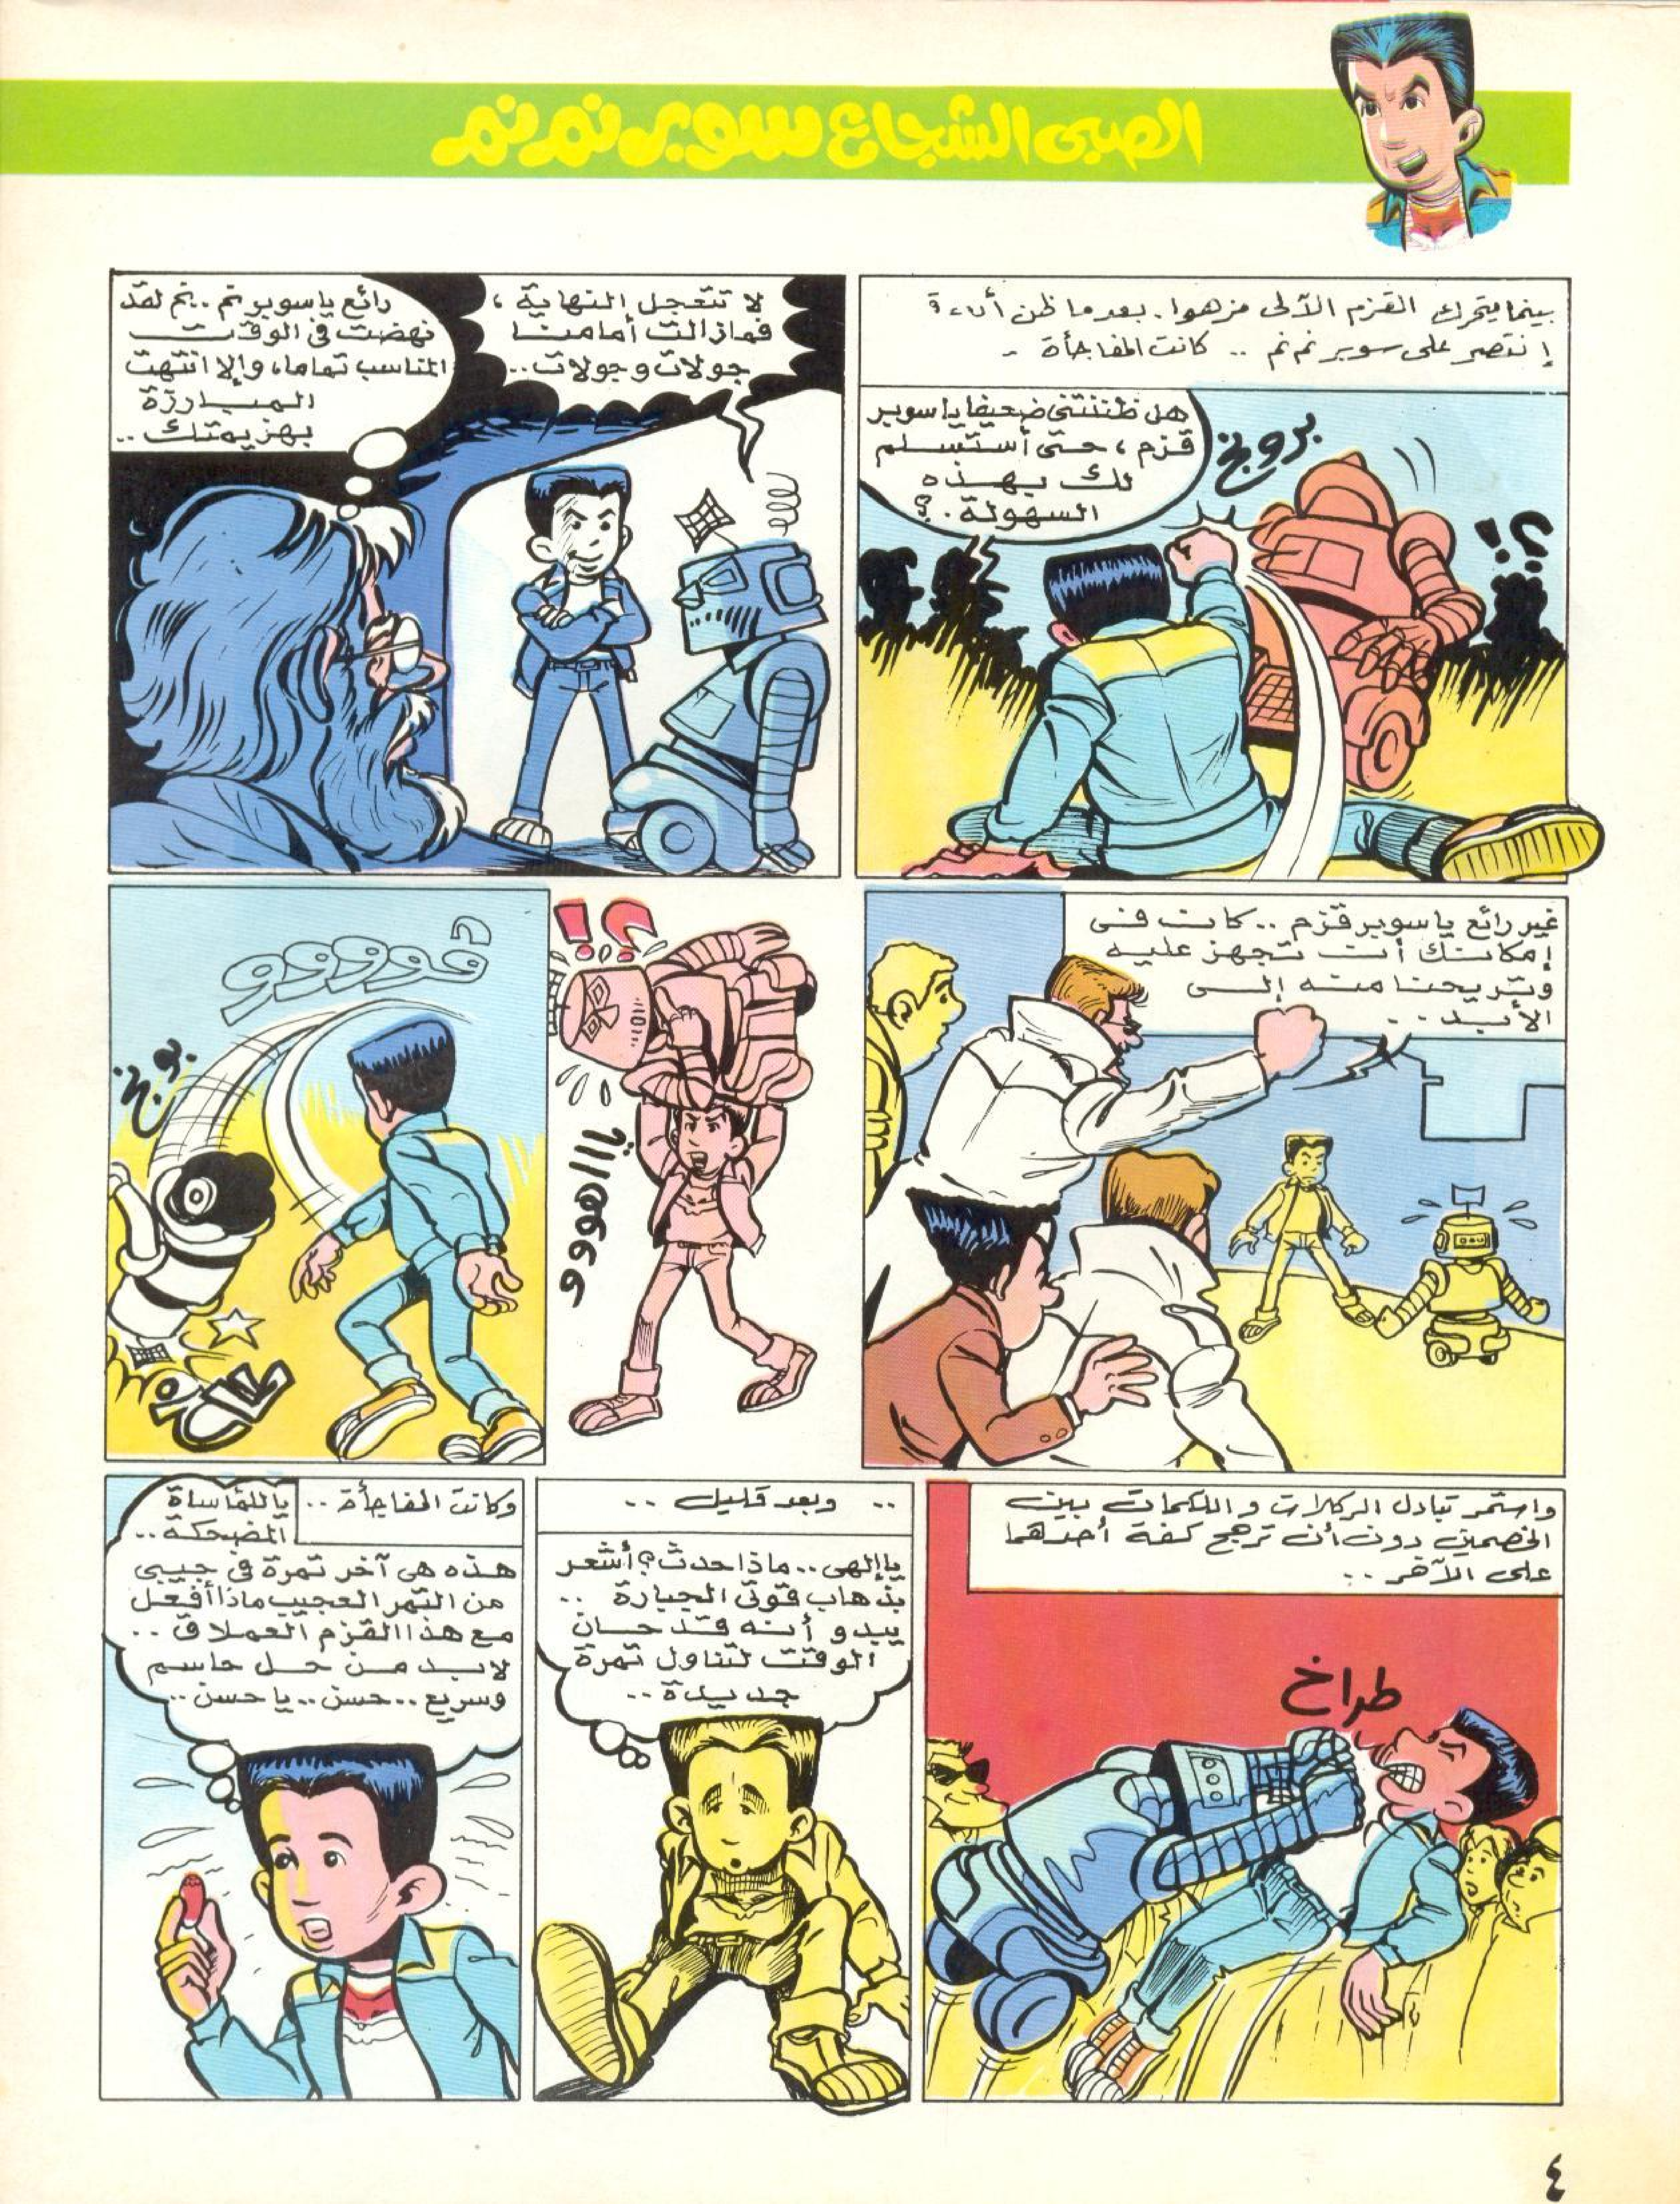 الصبى الشجاع سوبر نم نم
بينما يتحرك القزم الآلى مزهوا. بعد ما ظن أنه
إنتصر على سوبر نم نم .. كانت المفاجأة -
هل ظننتنى ضعيفا يا سوبر
قزم، حتى أستسلم
لك بهذه
السهولة.؟
بروخ
؟!
لا تتعجل النهاية،
فمازالت أمامنا
جولات وجولات..
رائع يا سوبر نم .. نم لقد
نهضت فى الوقت
المناسب تماما، وإلا انتهت
المبارزة
بهزيمتك..
غير رائع يا سوبر قزم .. كان فى
إمكانك أن تجهز عليه
وتريحنا منه إلى
الأبد..
؟!
يااااهووو
فوووو
بوخ
واستمر تبادل الركلات واللكمات بين
الخصمين دون أن ترجح كفة أحدهما
على الآخر ..
طراخ
.. وبعد قليل ..
يا إلهى .. ماذا حدث؟ أشعر
بذهاب قوتى الجبارة ..
يبدو أنه قد حان
الوقت لتناول تمرة
جديدة ..
وكانت المفاجأة ..
ياللمأساة
المضحكة ..
هذه هى آخر تمرة فى جيبى
من التمر العجيب ماذا أفعل
مع هذا القزم العملاق ..
لابد من حل حاسم
وسريع .. حسن .. يا حسن ..
٤